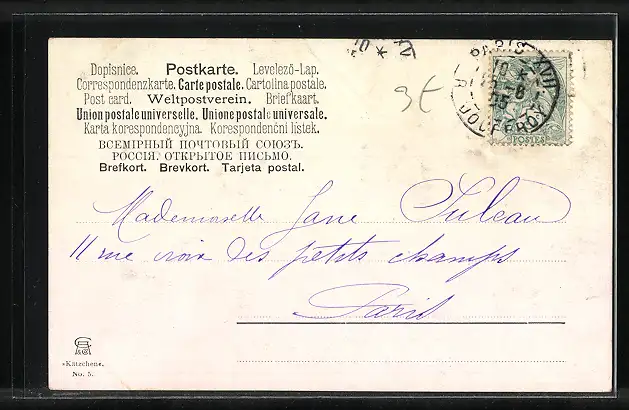 Dopisnice. Postkarte. Levelező-Lap.
Correspondenzkarte. Carte postale. Cartolina postale.
Post card. Weltpostverein. Briefkaart.
Union postale universelle. Unione postale universale.
Karta korespondencyjna. Korespondenční lístek.
ВСЕМІРНЫЙ ПОЧТОВЫЙ СОЮЗЪ.
РОССІЯ. ОТКРЫТОЕ ПИСЬМО.
Brefkort. Brevkort. Tarjeta postal.
3€
PARIS XVII
R. JOUFFROY
POSTES
Mademoiselle Jane
11 rue croix des petits champs
Paris
«Kätzchen»
No. 5.